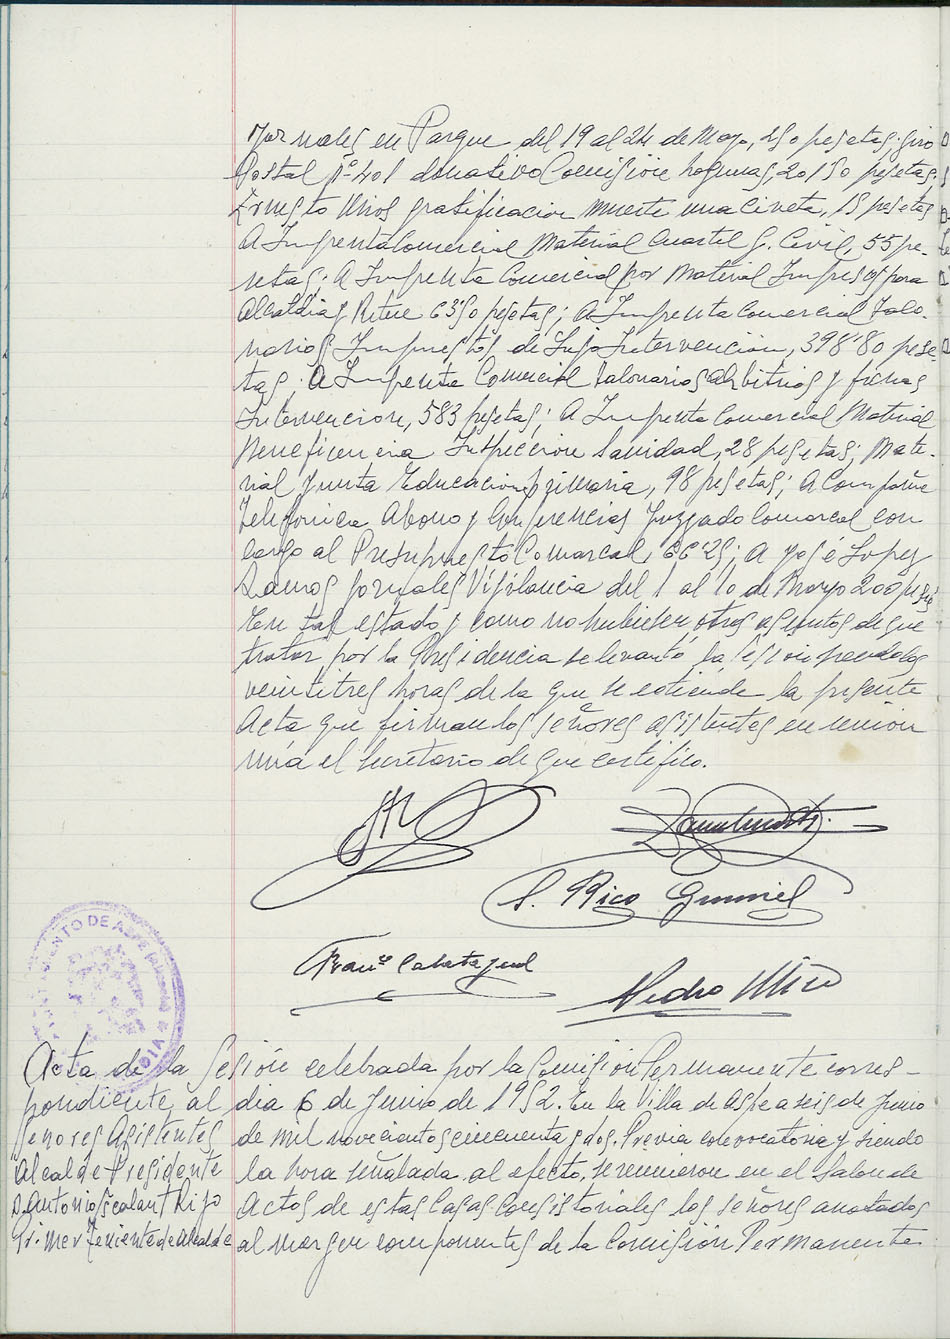 Jornales en Parque del 19 al 24 de Mayo, 250 pesetas; giro
Postal nº 401 donativo Comisión hogueras, 20150 pesetas;
Ernesto Mira gratificacion muerte una Civeta, 15 pesetas
A Imprenta Comercial Material Cuartel G. Civil, 55 pe-
setas; A Imprenta Comercial por Material Impresos para
Alcaldia y 63'50 pesetas; A Imprenta Comercial Talo-
narios Impuestos de Lujo Intervencion, 398'80 pese-
tas; A Imprenta Comercial talonarios arbitrios y fichas
Intervencion, 583 pesetas; A Imprenta Comercial Material
Beneficencia Inspeccion Sanidad, 28 pesetas; Mate-
rial Junta Educacion primaria, 98 pesetas; A Compañia
Telefonica Abono y Conferencias Juzgado Comarcal con
cargo al Presupuesto Comarcal, 66'25; A José Lopez
Ramos jornales Vigilancia del 1 al 10 de Mayo 200 pesetas
En tal estado y como no hubieren otros asuntos de que
tratar, por la Presidencia se levantó la sesion siendo las
veintitres horas de la que se extiende la presente
Acta que firman los señores asistentes en union
mia el Secretario de que certifico.
S. Rico Gumiel
Franco Calatayud
Pedro Mira
AYUNTAMIENTO DE ASPE (Alicante)
Acta de la Sesión celebrada por la Comisión Permanente corres-
pondiente al dia 6 de Junio de 1952. En la Villa de Aspe a seis de Junio
Señores Asistentes de mil novecientos cincuenta y dos. Previa convocatoria y siendo
Alcalde Presidente la hora señalada al efecto, se reunieron en el Salon de
D. Antonio Escalant Rizo Actos de estas Casas Consistoriales los señores anotados
Primer Teniente de Alcalde al margen componentes de la Comisión Permanente